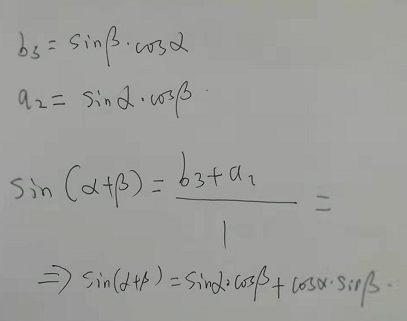 b₃ = sinβ·cosα
a₂ = sinα·cosβ.
sin(α+β) = (b₃+a₂)/1 =
⇒ sin(α+β) = sinα·cosβ + cosα·sinβ.